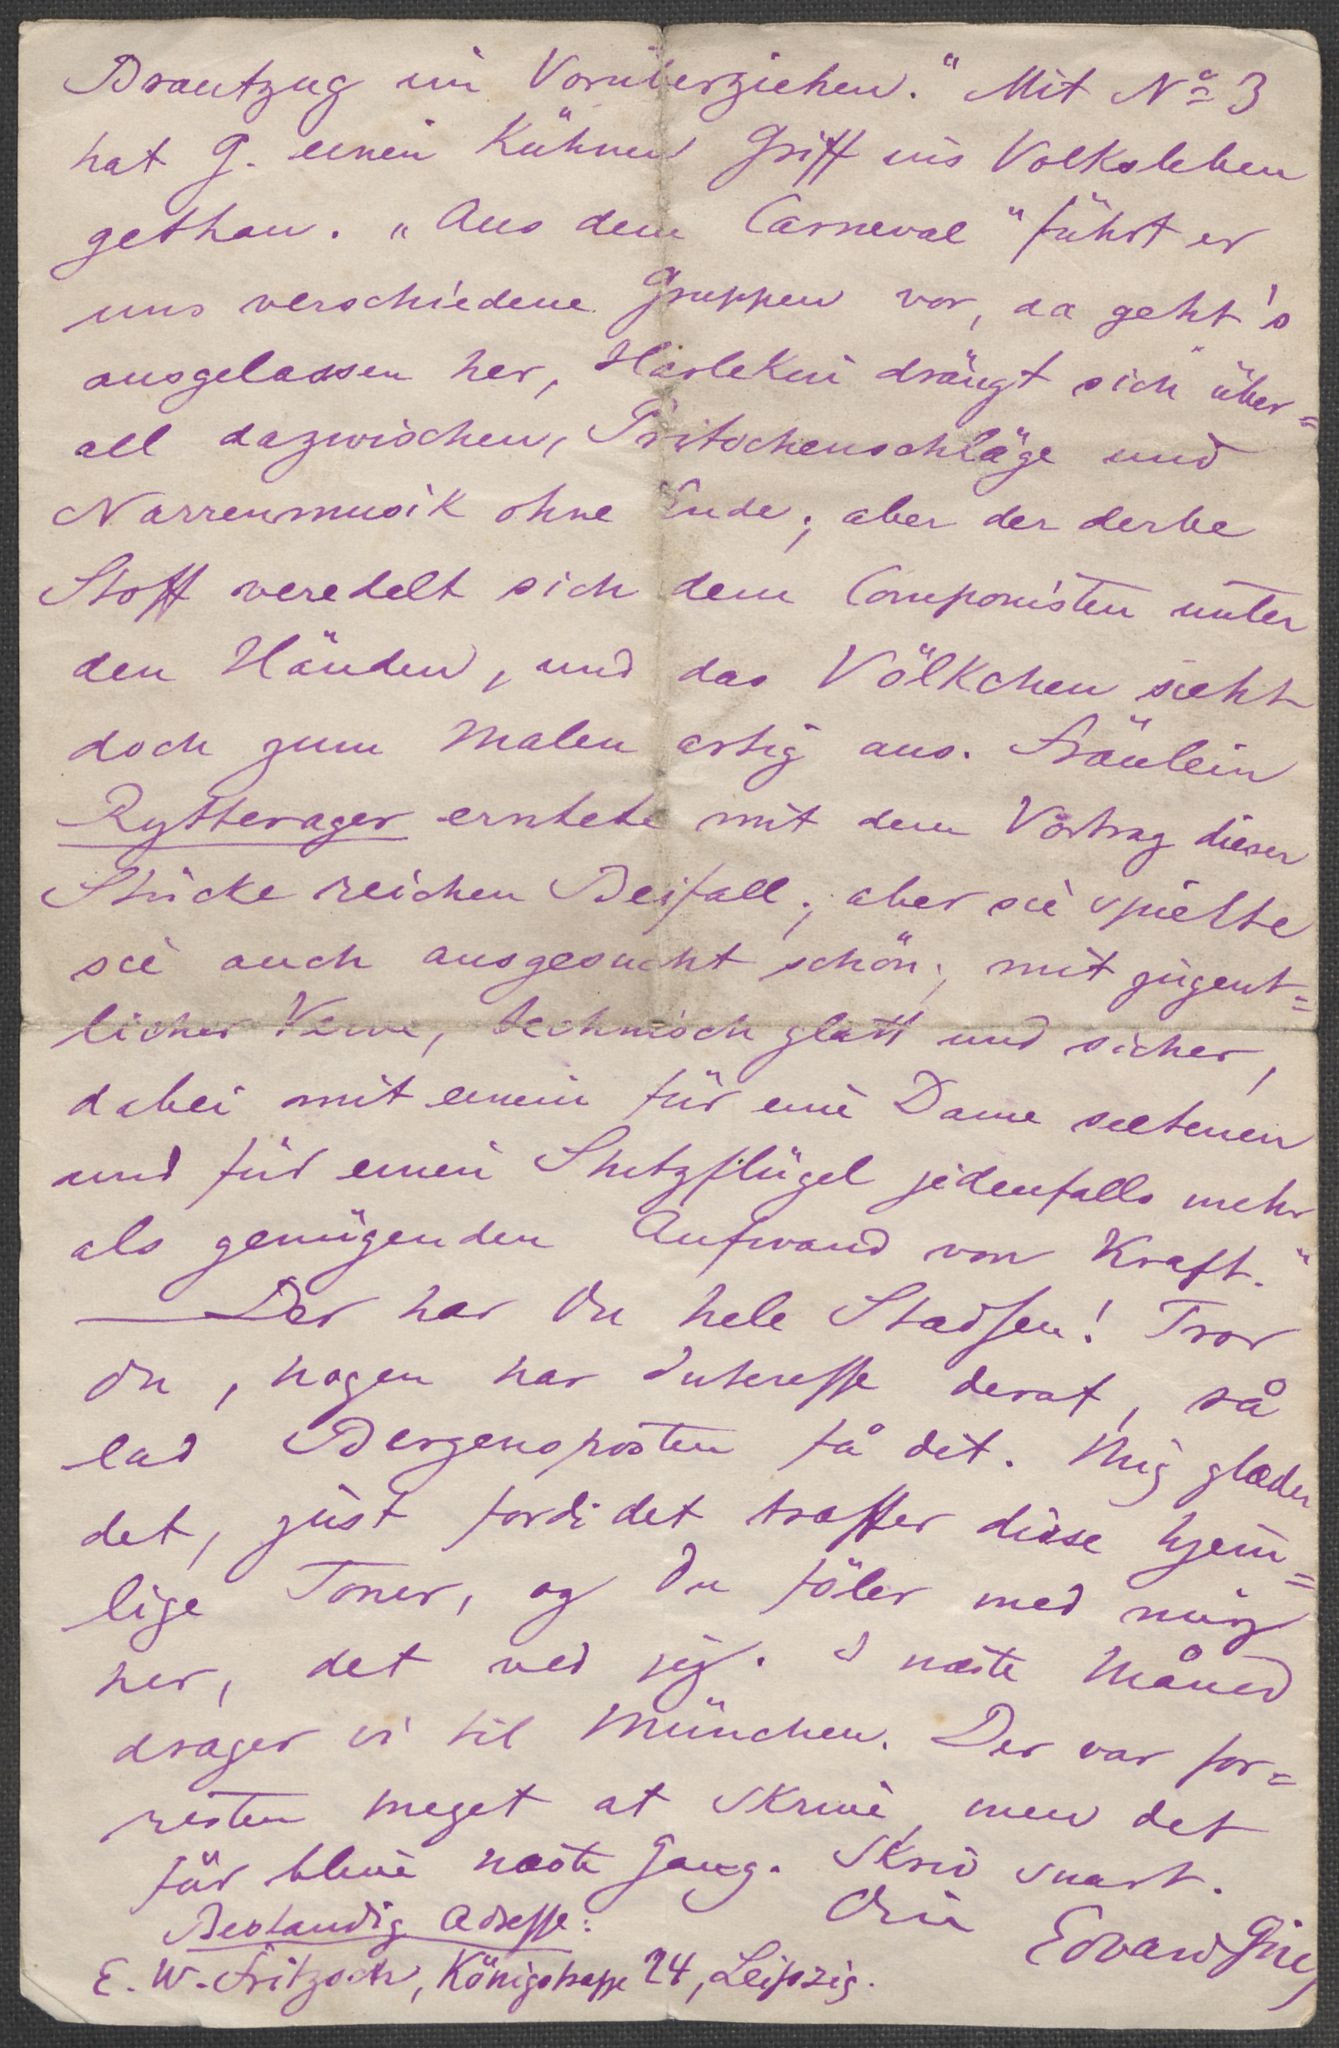 Brautzug im Vorüberziehen." Mit No 3
hat G. einen Kühnen Griff ins Volksleben
gethan. „Aus dem Carneval" führt er
uns verschiedene Gruppen vor, da geht's
ausgelassen her, Harlekin drängt sich über=
all dazwischen, Pritschenschläge und
Narrenmusik ohne Ende; aber der derbe
Stoff veredelt sich dem Componisten unter
den Händen, und das Völkchen sieht
doch zum Malen artig aus. Fräulein
Rytterager erntete mit dem Vortrag dieser
Stücke reichen Beifall; aber sie spielte
sie auch ausgesucht schön; mit jugent=
licher Verve, technisch glatt und sicher,
dabei mit einem für eine Dame seltenen
und für einen Stutzflügel jedenfalls mehr
als genügenden Aufwand von Kraft."
— Der har Du hele Stadsen! Tror
Du, nogen har Interesse deraf, så
lad Bergensposten få det. Mig glæder
det, just fordi det træffer disse hjem=
lige Toner, og Du föler med mig
her, det ved jeg. I næste Måned
drager vi til München. Der var for=
resten meget at skrive, men det
får blive næste Gang. Skriv snart.
Din Edvard Grieg
Bestandig Adresse:
E. W. Fritzsch, Königstrasse 24, Leipzig.